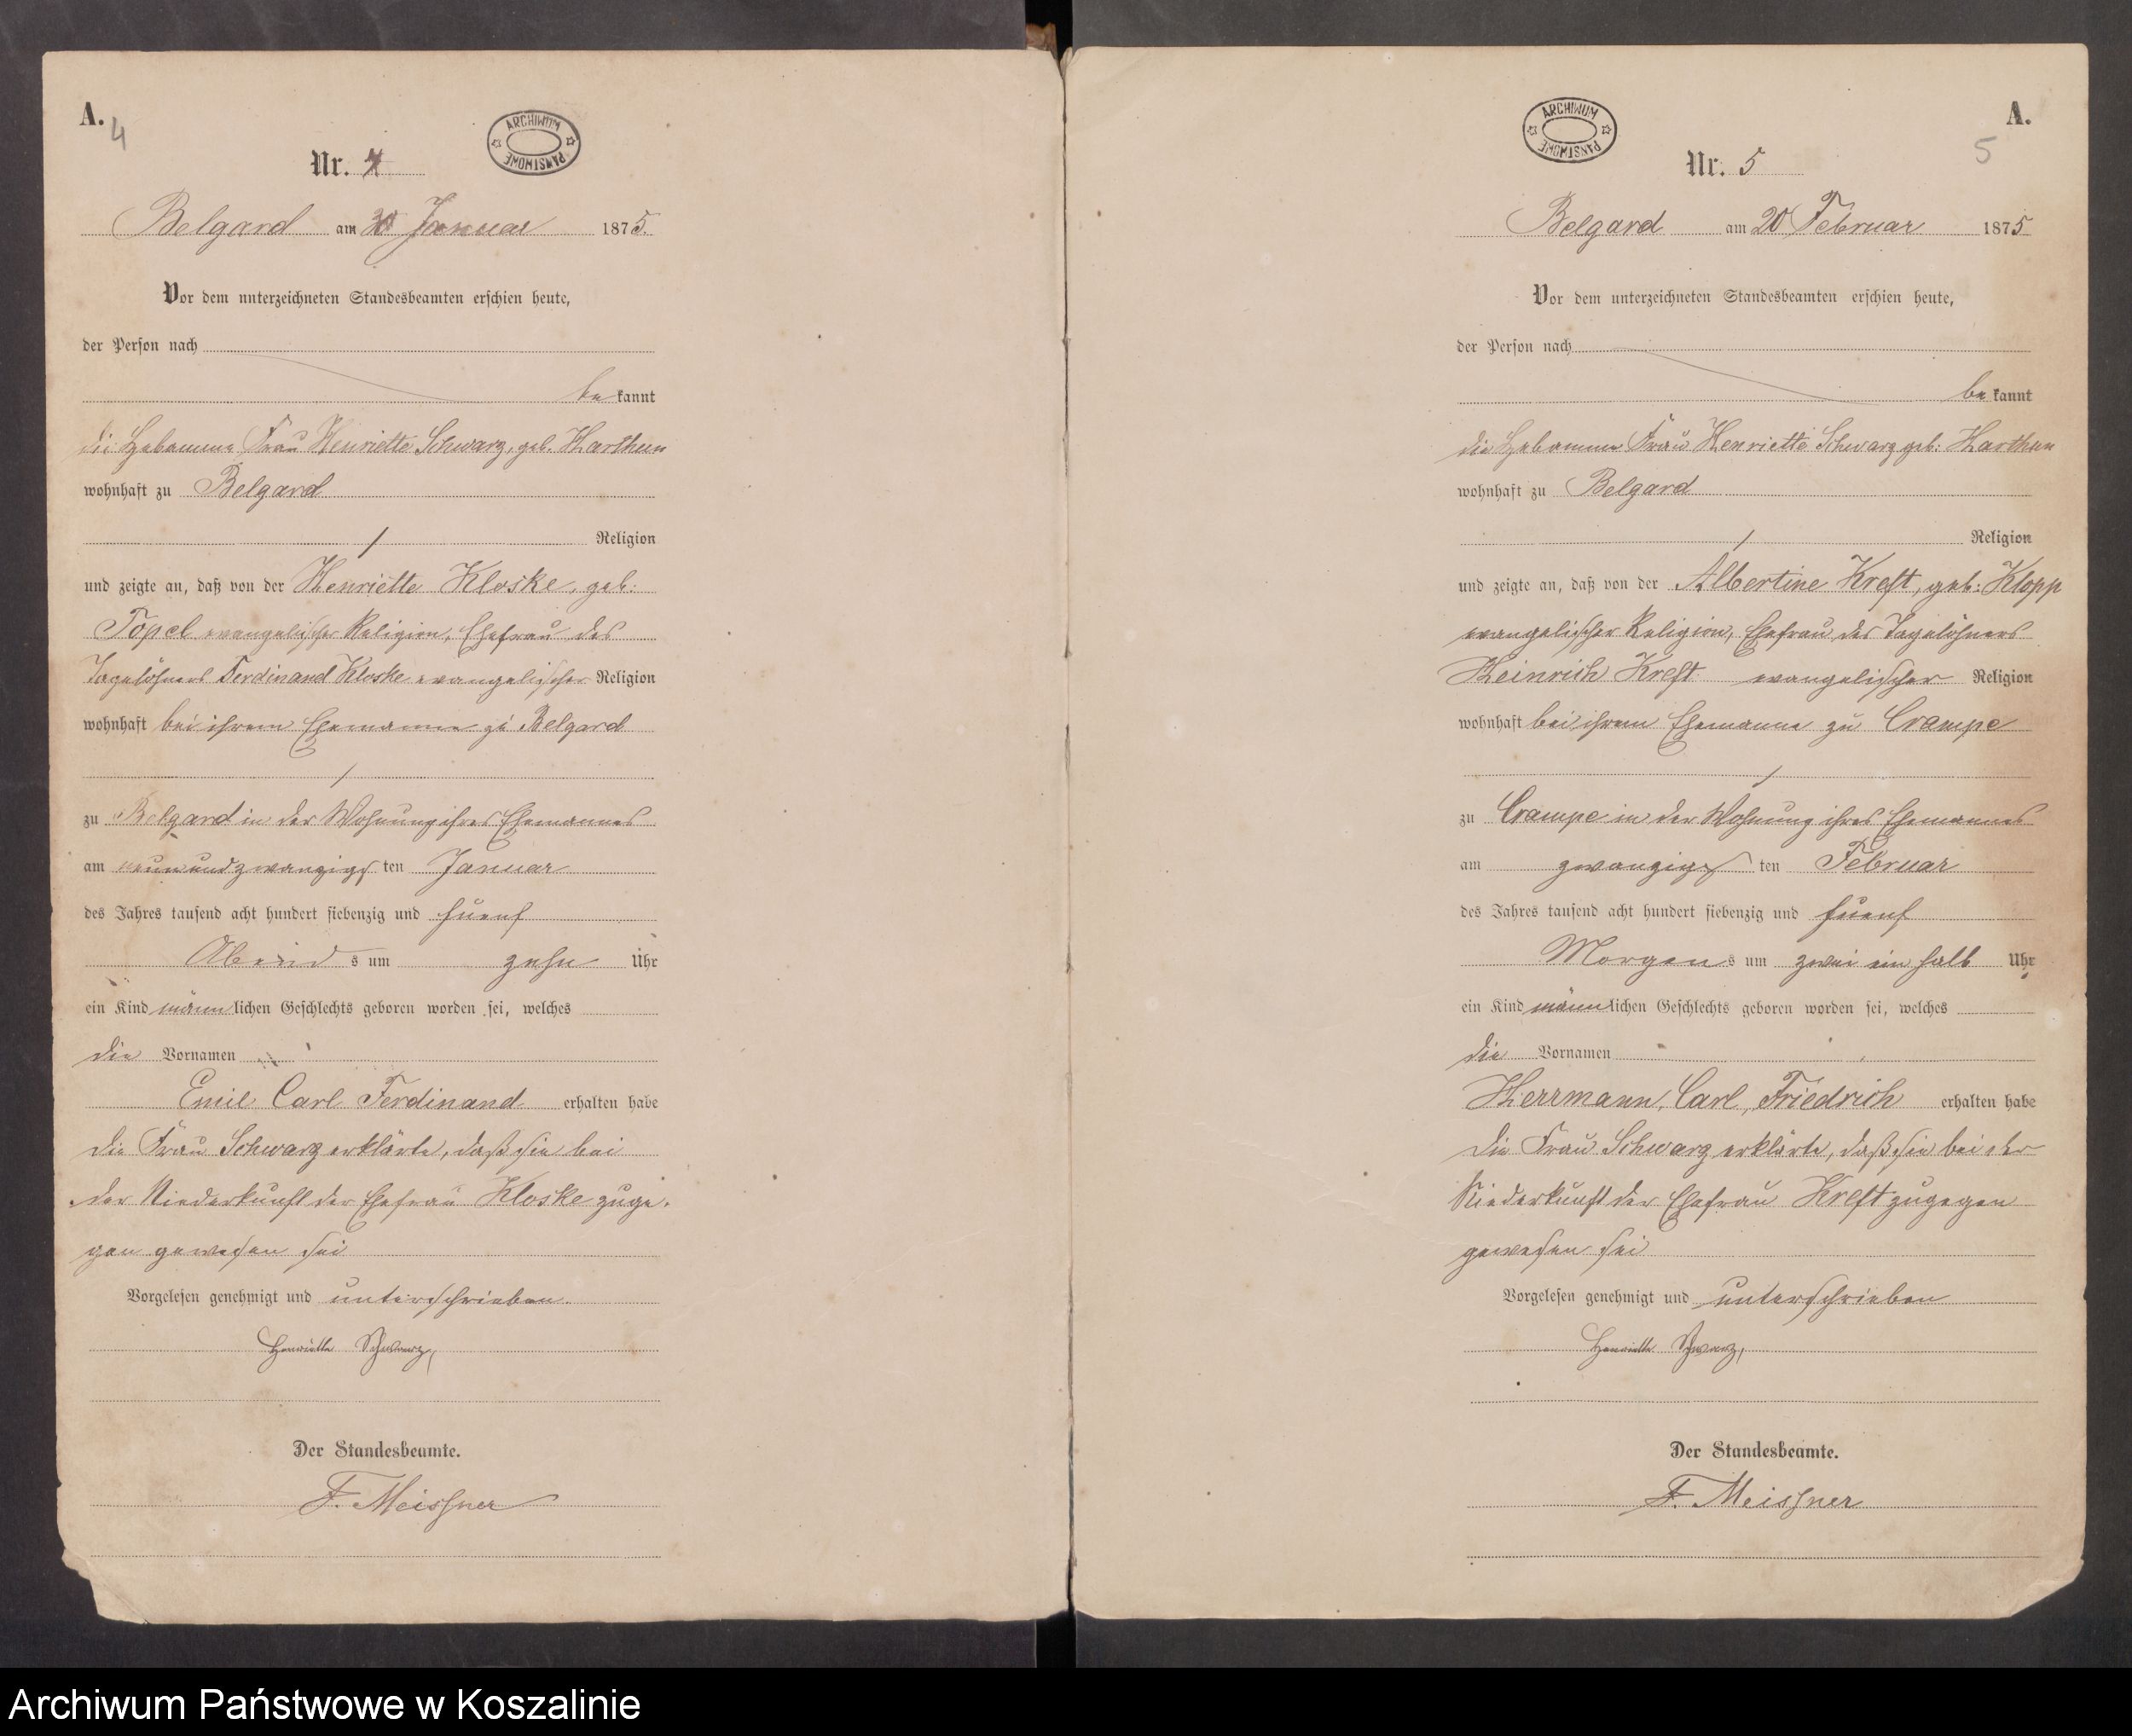 A.
4
ARCHIWUM
PAŃSTWOWE
Nr. 4
Belgard am 30 Januar 1875.
Vor dem unterzeichneten Standesbeamten erschien heute,
der Person nach
be kannt
die Hebamme Frau Henriette Schwarz, geb. Harthun
wohnhaft zu Belgard
Religion
und zeigte an, daß von der Henriette Kloske, geb.
Topel evangelischer Religion, Ehefrau des
Tagelöhners Ferdinand Kloske evangelischer Religion
wohnhaft bei ihrem Ehemanne zu Belgard
zu Belgard in der Wohnung ihres Ehemannes
am neunundzwanzigsten Januar
des Jahres tausend acht hundert siebenzig und fuenf
Abends um zehn Uhr
ein Kind männlichen Geschlechts geboren worden sei, welches
die Vornamen
Emil Carl Ferdinand erhalten habe
die Frau Schwarz erklärte, daß sie bei
der Niederkunft der Ehefrau Kloske zuge-
gen gewesen sei
Vorgelesen genehmigt und unterschrieben.
Henriette Schwarz,
Der Standesbeamte.
F. Meissner
ARCHIWUM
PAŃSTWOWE
A.
5
Nr. 5
Belgard am 20 Februar 1875
Vor dem unterzeichneten Standesbeamten erschien heute,
der Person nach
be kannt
die Hebamme Frau Henriette Schwarz geb: Harthun
wohnhaft zu Belgard
Religion
und zeigte an, daß von der Albertine Kreft, geb: Klopp
evangelischer Religion, Ehefrau des Tagelöhners
Heinrich Kreft evangelischer Religion
wohnhaft bei ihrem Ehemanne zu Crampe
zu Crampe in der Wohnung ihres Ehemannes
am zwanzigsten Februar
des Jahres tausend acht hundert siebenzig und fuenf
Morgens um zwei ein halb Uhr
ein Kind männlichen Geschlechts geboren worden sei, welches
die Vornamen
Herrmann, Carl, Friedrich erhalten habe
die Frau Schwarz erklärte, daß sie bei der
Niederkunft der Ehefrau Kreft zugegen
gewesen sei
Vorgelesen genehmigt und unterschrieben
Henriette Schwarz,
Der Standesbeamte.
F. Meissner
Archiwum Państwowe w Koszalinie